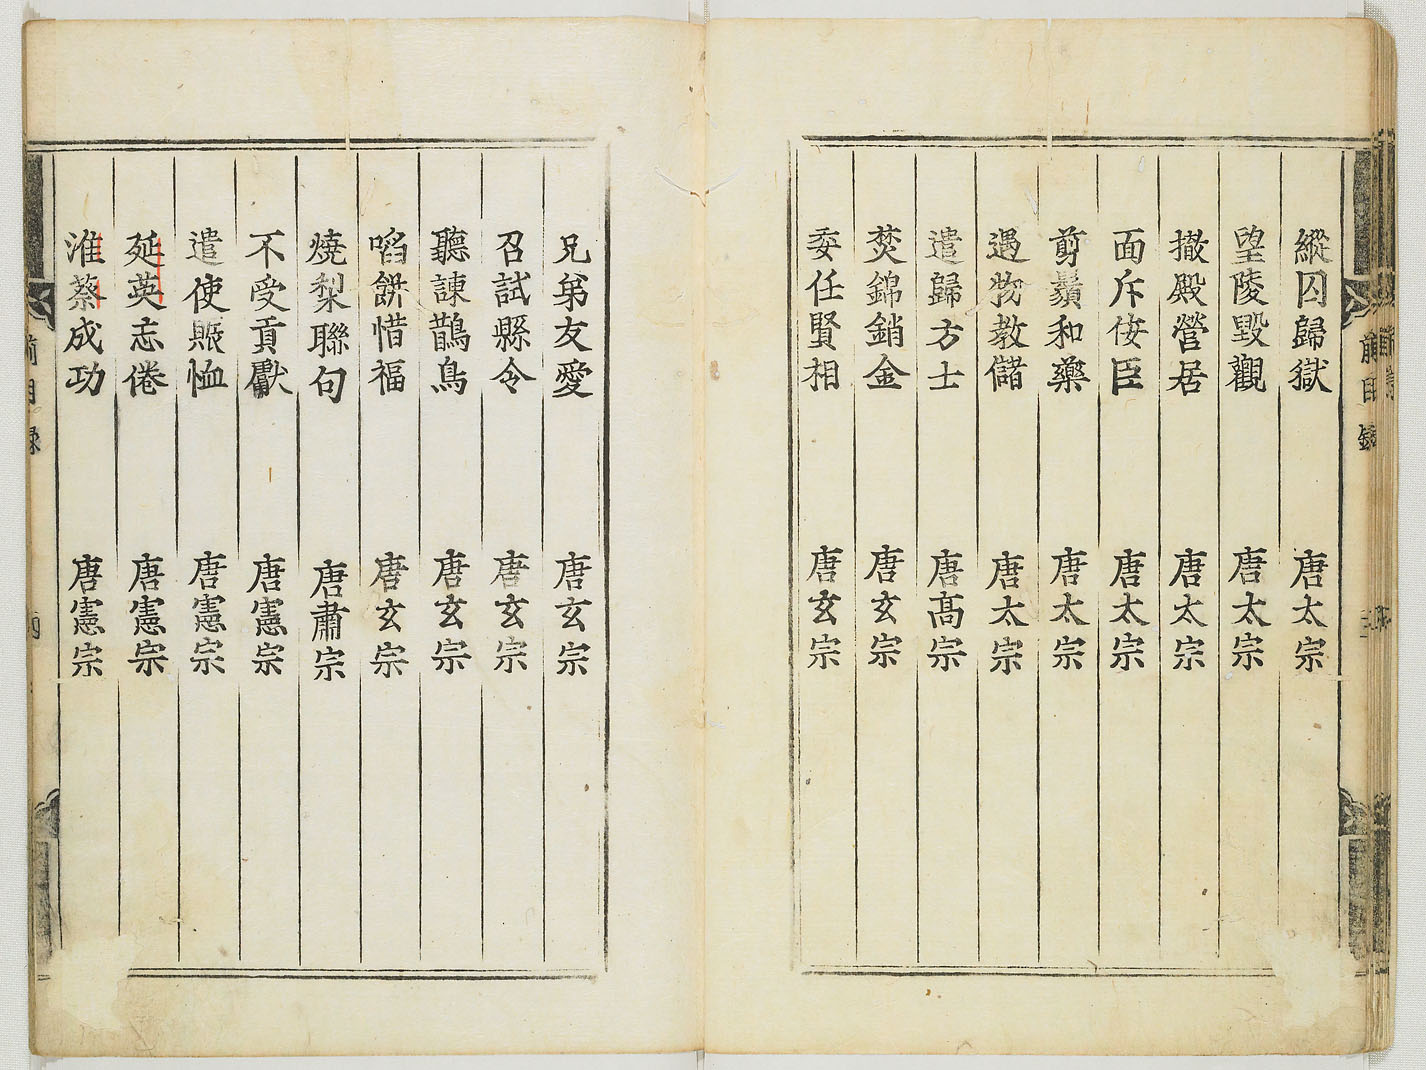 縱囚歸獄 唐太宗
望陵毀觀 唐太宗
撤殿營居 唐太宗
面斥佞臣 唐太宗
剪鬚和藥 唐太宗
遇物教儲 唐太宗
遣歸方士 唐高宗
焚錦銷金 唐玄宗
委任賢相 唐玄宗
兄弟友愛 唐玄宗
召試縣令 唐玄宗
聽諫散鳥 唐玄宗
啗餅惜福 唐玄宗
燒梨聯句 唐肅宗
不受貢獻 唐憲宗
遣使賑恤 唐憲宗
延英忘倦 唐憲宗
淮蔡成功 唐憲宗
前目錄